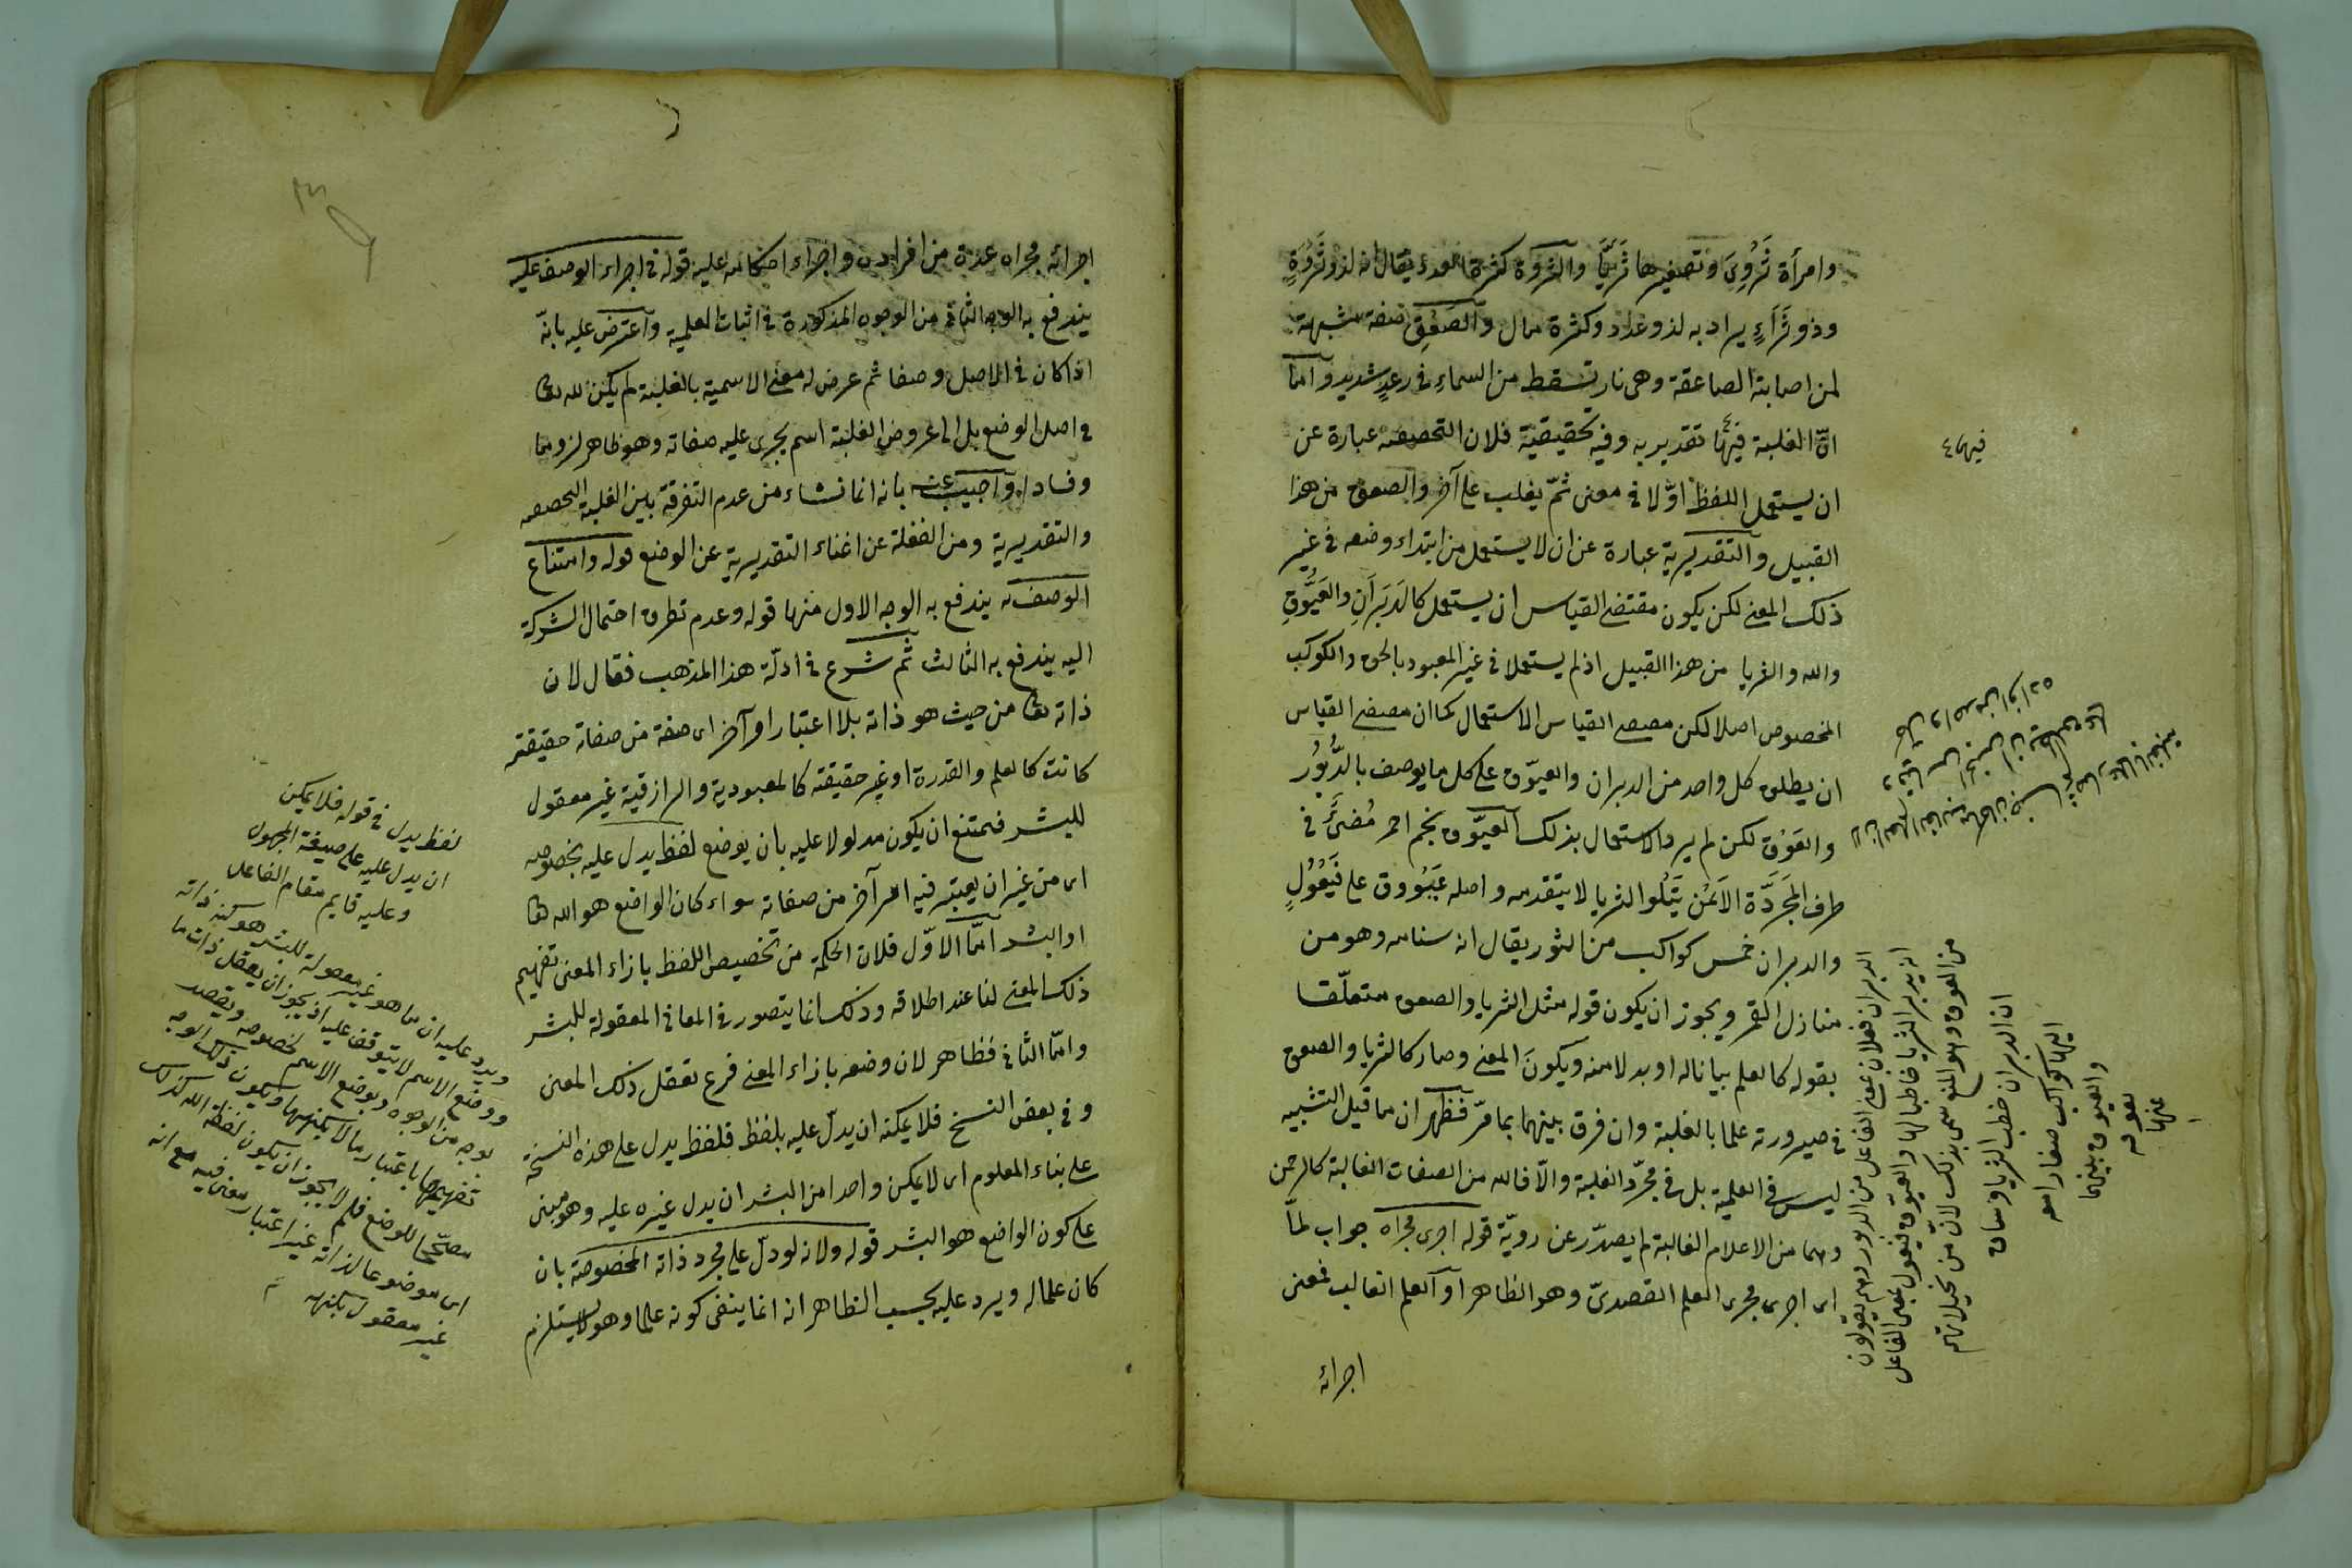 وامرأة ثَرْوى وتصغيرها ثُرَيَّا والثروة كثرة العدد يقال انه لذو ثَرْوَةٍ
وذو ثَرَاءٍ يراد به لذو عدد وكثرة مال والصَعِق صفة مشبهة
لمن اصابته الصاعقة وهى نار تسقط من السماء فى رعدٍ شديد وامّا
انّ الغلبة فيهما تقديرية وفيه تحقيقية فلان التحصصه عبارة عن
ان يستعمل اللفظ اوّلا فى معنى ثمّ يغلب على آخر والصعق من هذا
القبيل والتقديرية عبارة عن ان لا يستعمل من ابتداء وضعه فى غير
ذلك المعنى لكن يكون مقتضى القياس ان يستعمل كالدَبَرَانِ والعَيُّوقِ
والله والثريا من هذا القبيل اذ لم يستعملا فى غير المعبود بالحق والكوكب
المخصوص اصلا لكن مقتضى القياس الاستعمال كما ان مقتضى القياس
ان يطلق كل واحد من الدبران والعيّوق على كل ما يوصف بالدُّبُوُر
والعَوْق لكن لم يرد الاستعمال بذلك العيّوق نجم احمر مُضئٌ فى
طرف المَجَرَّة الاَيْمَن يَتْلُوا الثريا لا يتقدمه واصله عَيْوُوق على فَيْعُولٍ
والدبران خمس كواكب من الثور يقال انه سنامه وهو من
منازل القمر ويجوز ان يكون قوله مثل الثريا والصعق متعلّقا
بقوله كالعلم بيانا له او بدلا منه ويكونَ المعنى وصار كالثريا والصعق
فى صيرورته علما بالغلبة وان فرق بينهما بما مرّ فظهر ان ما قيل التشبيه
ليس فى العلمية بل فى مجرّد الغلبة والاّ فالله من الصفات الغالبة كالرحمن
وهما من الاعلام الغالبة لم يصدر عن رويّة قوله اجرى مجراه جواب لمّا
اى اجرى مجرى العلم القصدىّ وهو الظاهر او العلم الغالب فمعنى
اجرائه
فيها
الدبران فعلان بمعنى الفاعل من الدبور وهم يقولون
انه يدبر الثريا خاطبا لها والعيّوق فيعول بمعنى الفاعل
من العوق وهو المنع سمى بذلك لانّ من تخيلاتهم
ان الدبران خطب الثريا وساق
اليها كواكب صغارا معه
والعيوق بينهما
يعوقه
عنها
اجرائه مجراه عدة من افراده واجراء احكامه عليه قوله فى اجراء الوصف عليه
يندفع به الوجه الثانى من الوجوه المذكورة فى اثبات العلمية واعترض عليه بانّه
اذا كان فى الاصل وصفا ثم عرض له معنى الاسمية بالغلبة لم يكن لله تعا
فى اصل الوضع بل الى عروض الغلبة اسم يجرى عليه صفاته وهو ظاهر لزوما
وفسادا واجيب عنه بانه انما نشاء من عدم التفرقة بين الغلبة التحصصه
والتقديرية ومن الغفلة عن اغناء التقديرية عن الوضع قوله وامتناع
الوصف به يندفع به الوجه الاول منها قوله وعدم تطرق احتمال الشركة
اليه يندفع به الثالث ثم شرع فى ادلّة هذا المذهب فقال لان
ذاته تعا من حيث هو ذاته بلا اعتبار امر آخر اى صفة من صفاته حقيقة
كانت كالعلم والقدرة او غير حقيقة كالمعبودية والرازقية غير معقول
للبشر فيمتنع ان يكون مدلولا عليه بان يوضع لفظ يدل عليه بخصوصه
اى من غير ان يعتبر فيه امر آخر من صفاته سواء كان الواضع هو الله تعا
او البشر امّا الاوّل فلان الحكمة من تخصيص اللفظ بازاء المعنى تفهيم
ذلك المعنى لنا عند اطلاقه وذلك انما يتصور فى المعانى المعقولة للبشر
وامّا الثانى فظاهر لان وضعه بازاء المعنى فرع تعقل ذلك المعنى
وفى بعض النسخ فلا يمكنه ان يدلّ عليه بلفظ فلفظ يدل على هذه النسخة
على بناء المعلوم اى لا يمكن واحدا من البشر ان يدل غيره عليه وهو مبنى
على كون الواضع هو البشر قوله ولانه لو دلّ على مجرد ذاته المخصوصة بان
كان علما له ويرد عليه بحسب الظاهر انه انما ينفى كونه علما وهو لا يستلزم
لفظ يدل فى قوله فلا يمكن
ان يدل عليه على صيغة المجهول
وعليه قايم مقام الفاعل
ويرد عليه ان ما هو غير معقول للبشر هو كنه ذاته
ووضع الاسم لا يتوقف عليه اذ يجوز ان يعقل ذات ما
بوجه من الوجوه ويوضع الاسم لخصوصه ويقصد
تفهيمها باعتبار ما لا بكنهها ويكون ذلك الوجه
مصحّحا للوضع فلم لا يجوز ان يكون لفظة الله كذلك
اى موضوعا لذاته غير اعتبار معنى فيه مع انه
غير معقول بكنهه